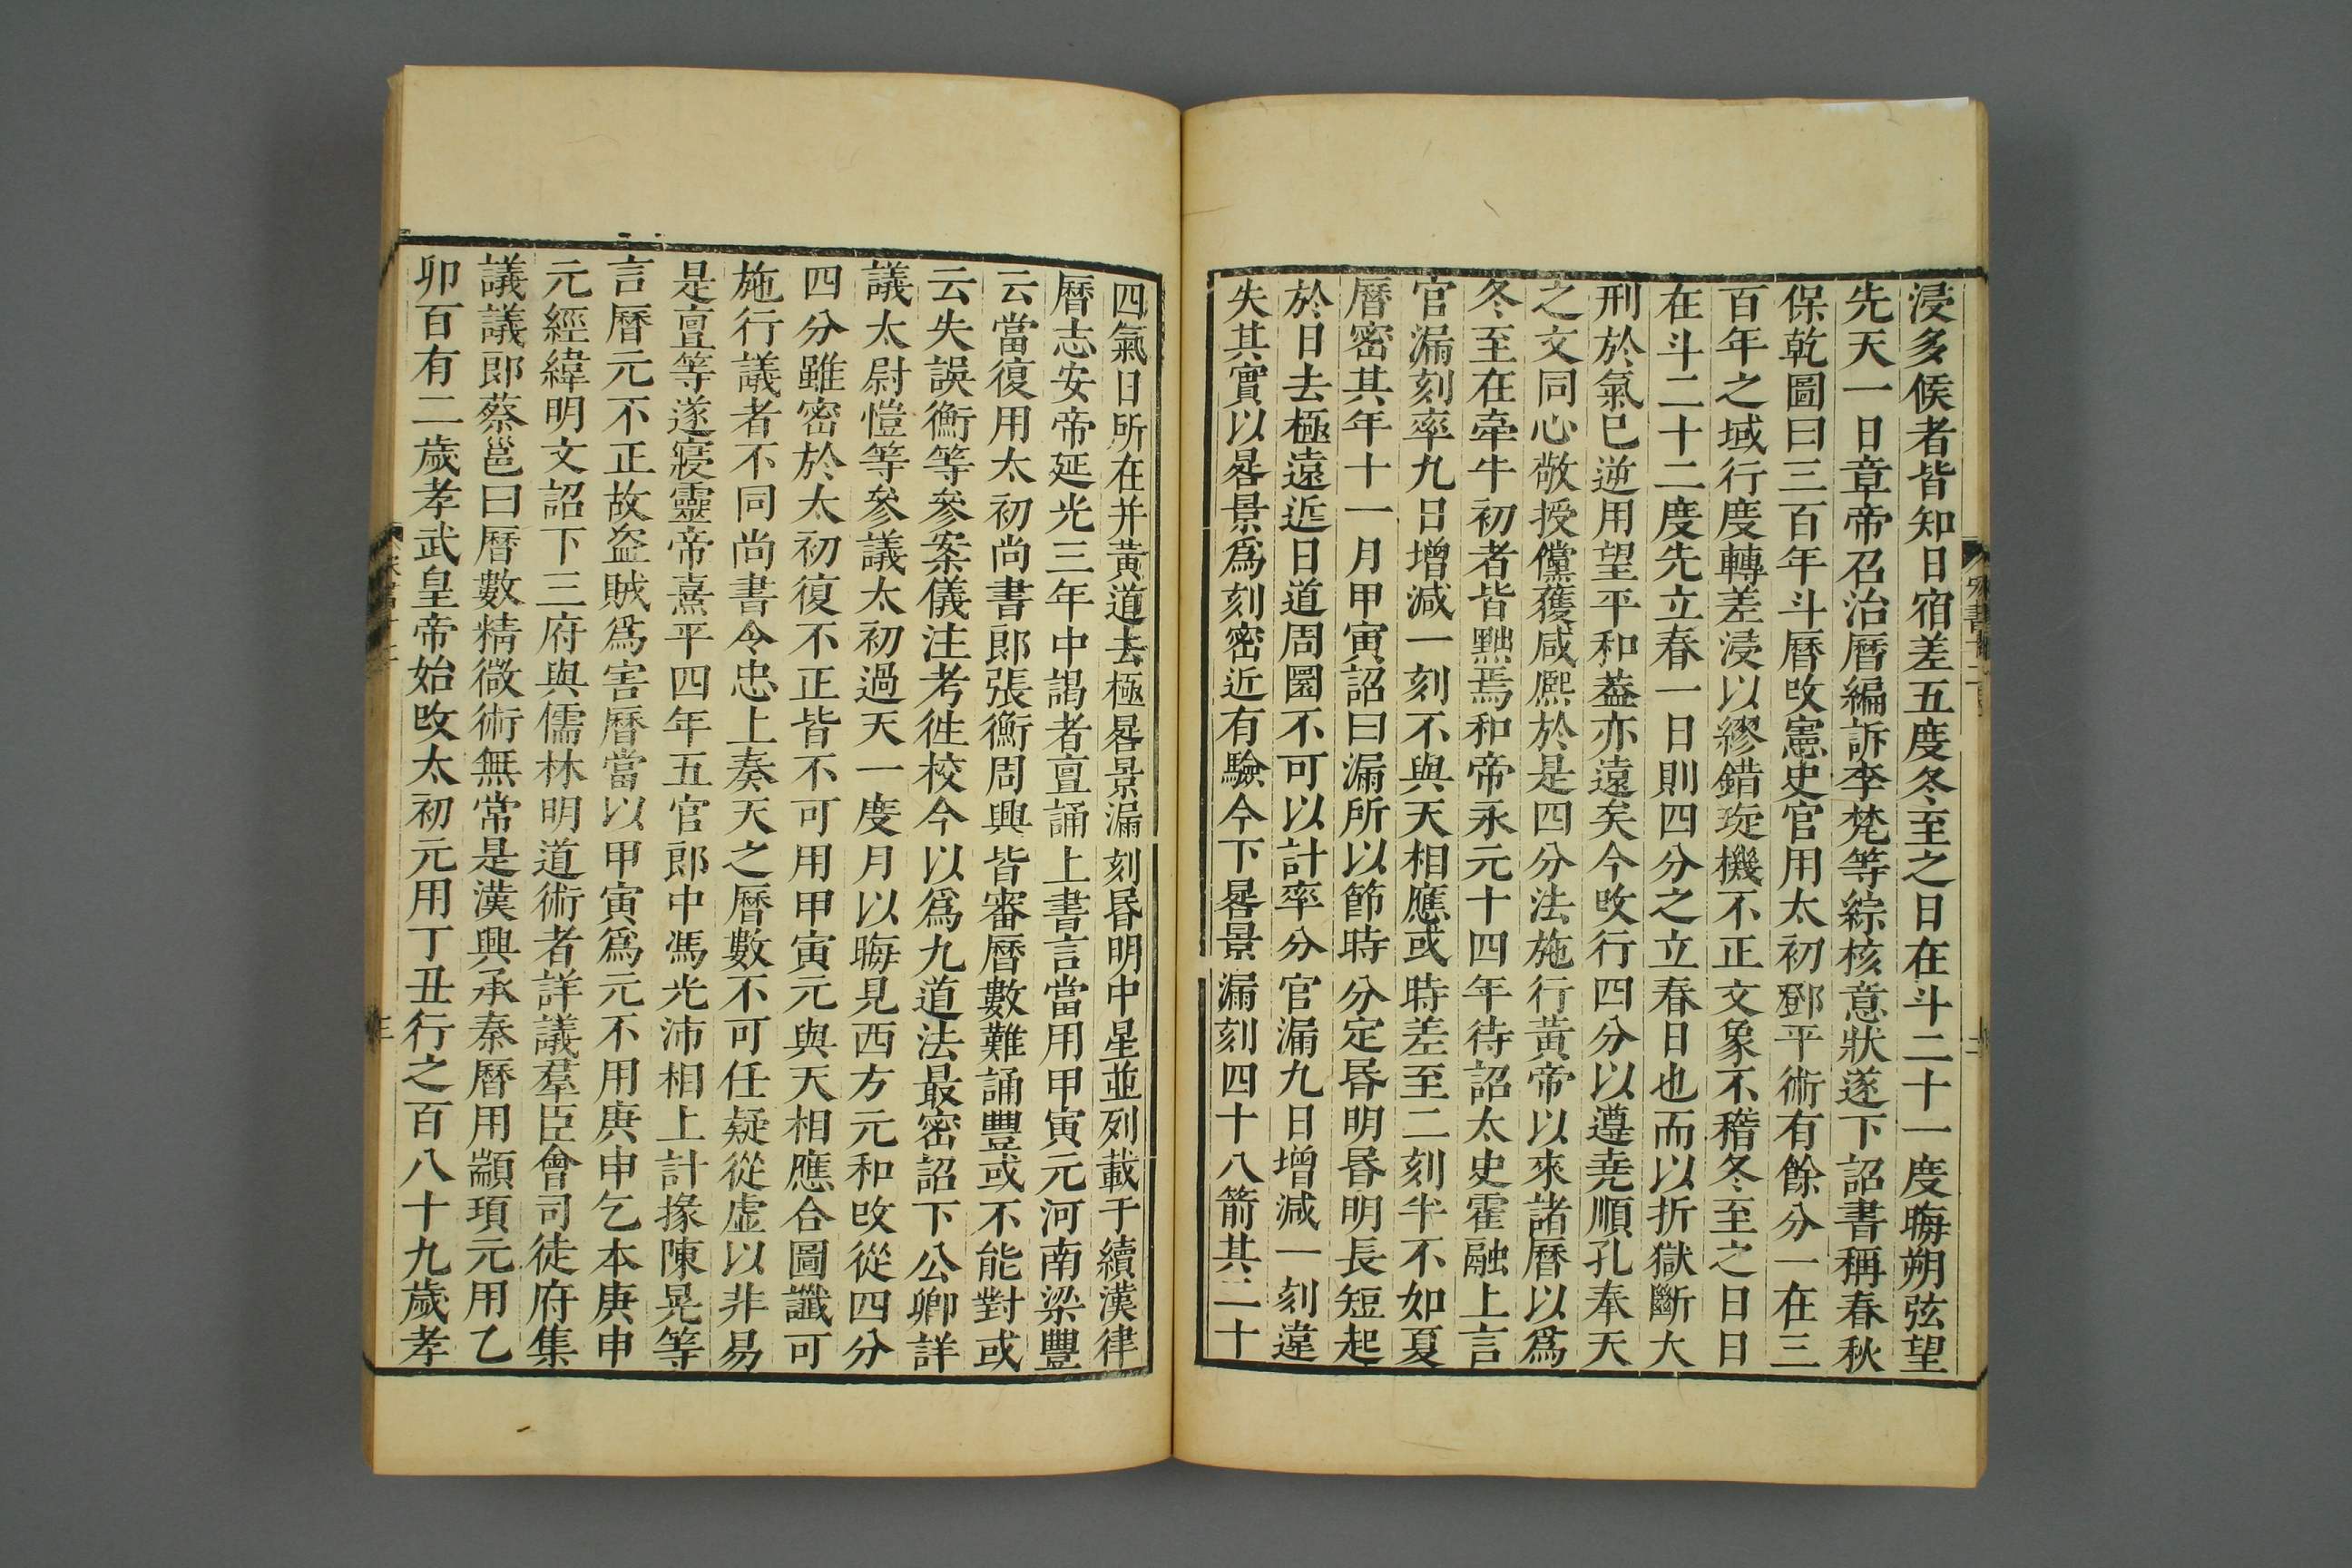 浸多候者皆知日宿差五度冬至之日在斗二十一度晦朔弦望
先天一日章帝召治曆編訴李梵等綜核意狀遂下詔書稱春秋
保乾圖曰三百年斗曆改憲史官用太初鄧平術有餘分一在三
百年之域行度轉差浸以繆錯琁機不正文象不稽冬至之日日
在斗二十二度先立春一日則四分之立春日也而以折獄斷大
刑於氣已逆用望平和葢亦遠矣今改行四分以遵堯順孔奉天
之文同心敬授儻獲咸熈於是四分法施行黃帝以來諸曆以爲
冬至在牽牛初者皆黜焉和帝永元十四年待詔太史霍融上言
官漏刻率九日增減一刻不與天相應或時差至二刻半不如夏
曆密其年十一月甲寅詔曰漏所以節時分定昬明昬明長短起
於日去極遠近日道周圜不可以計率分官漏九日增減一刻違
失其實以晷景爲刻密近有驗今下晷景漏刻四十八箭其二十
四氣日所在并黃道去極晷景漏刻昬明中星並列載于續漢律
曆志安帝延光三年中謁者亶誦上書言當用甲寅元河南梁豐
云當復用太初尚書郎張衡周興皆審曆數難誦豐或不能對或
云失誤衡等參案儀注考徃校今以爲九道法最密詔下公卿詳
議太尉愷等參議太初過天一度月以晦見西方元和改從四分
四分雖密於太初復不正皆不可用甲寅元與天相應合圖讖可
施行議者不同尚書令忠上奏天之曆數不可任疑從虛以非易
是亶等遂寢靈帝熹平四年五官郎中馮光沛相上計掾陳晃等
言曆元不正故盜賊爲害曆當以甲寅爲元不用庚申乞本庚申
元經緯明文詔下三府與儒林明道術者詳議羣臣會司徒府集
議議郎蔡邕曰曆數精微術無常是漢興承秦曆用顓頊元用乙
卯百有二歲孝武皇帝始改太初元用丁丑行之百八十九歲孝